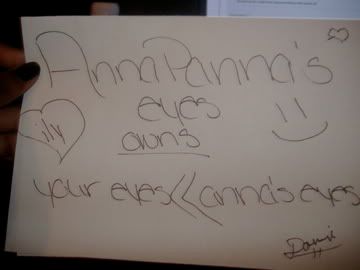 AnnaPanna's
eyes
owns
ily
your eyes<<anna's eyes